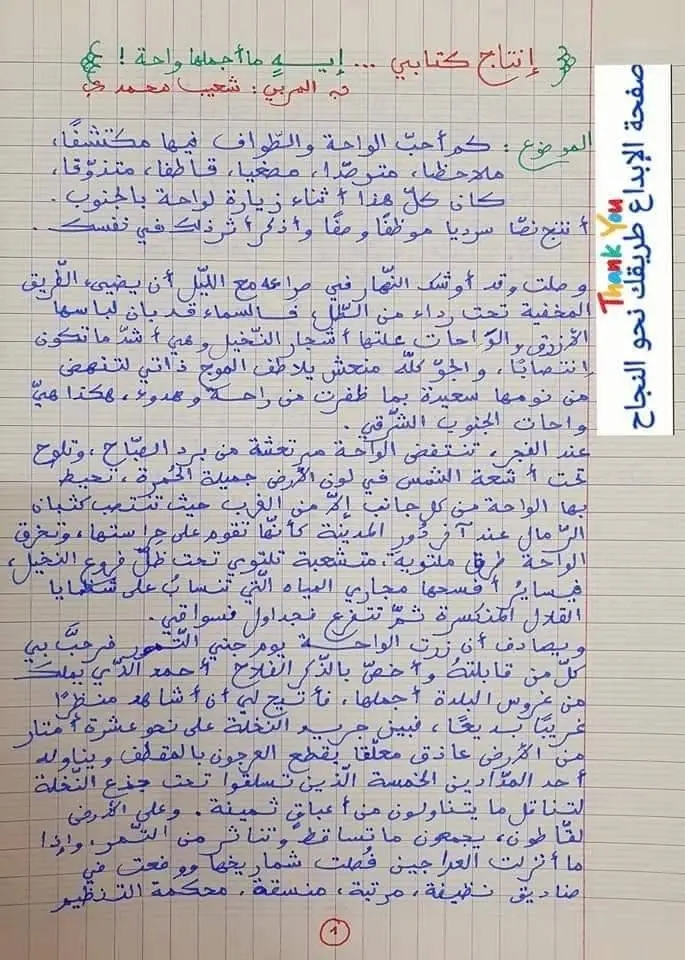 إنتاج كتابي ... إيـــهٍ ما أجملها واحة !
المربي : شعيب محمدي
الموضوع : كم أحبّ الواحة والطّواف فيها مكتشفًا،
ملاحظا، مترصّدا، مصغيا، قاطفا، متذوّقا،
كان كلّ هذا أثناء زيارة لواحة بالجنوب.
أنتج نصّا سرديا موظّفا وصفًا وأذكر أثر ذلك في نفسك.
وصلت وقد أوشك النّهار في صراعه مع الليّل أن يضيئ الطّريق
المخفية تحت رداء من الظّل، فالسماء قد بان لباسها
الأزرق والواحات علتها أشجار النّخيل وهي أشدّ ما تكون
إنتصابًا، والجوّ كلّه منعش يلاطف الموج ذاتي لتنهض
من نومها سعيدة بما ظفرت من راحة وهدوء، هكذا هيّ
واحات الجنوب الشّرقي.
عند الفجر، تنتفض الواحة مرتعشة من برد الصّباح، وتلوح
تحت أشعة الشمس في لون الأرض جميلة الحمرة، تحيط
بها الواحة من كل جانب إلاّ من الغرب حيث تنتصب كثبان
الرّمال عند آخر دُور المدينة كأنّها تقوم على حراستها، وتخرق
الواحة طرق ملتوية، متشعبة تلتوي تحت ظلّ فروع النخيل،
فيسايرُ أفسحها مجاري المياه الّتي تنسابُ على شظايا
القلال المنكسرة ثمّ تتفرّع فجداول فسواقي.
ويصادف أن زرت الواحـــة يوم جني التّمور فرحبَّ بي
كلّ من قابلتهُ وأخصّ بالذّكر الفلاح أحمد الذّي يملك
من غروس البلدة أجملها، فأتيح لي أن أشاهد منظرًا
غريبًا بديعًا، فبين جريد النخلة على نحو عشرة أمتار
من الأرض عاذق معلّقا يقطع العرجون بالمقطف ويناوله
أحد المدّادين الخمسة الّذين تسلقوا تحت جذع النّخلة
لتناقل ما يتناولون من أعباقٍ ثمينة. وعلى الأرض
لقّاطون، يجمعون ما تساقط وتناثر من التّمر. وإذا
ما أنزلت العراجين فُصلت شماريخها ووضعت في
صناديق نظيفة، مرتبة، منسقة، محكمة التنظيم
1
Thank You
صفحة الإبداع طريقك نحو النجاح